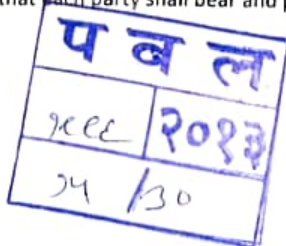 that each party shall bear and
प व ल
२०१३
/३०